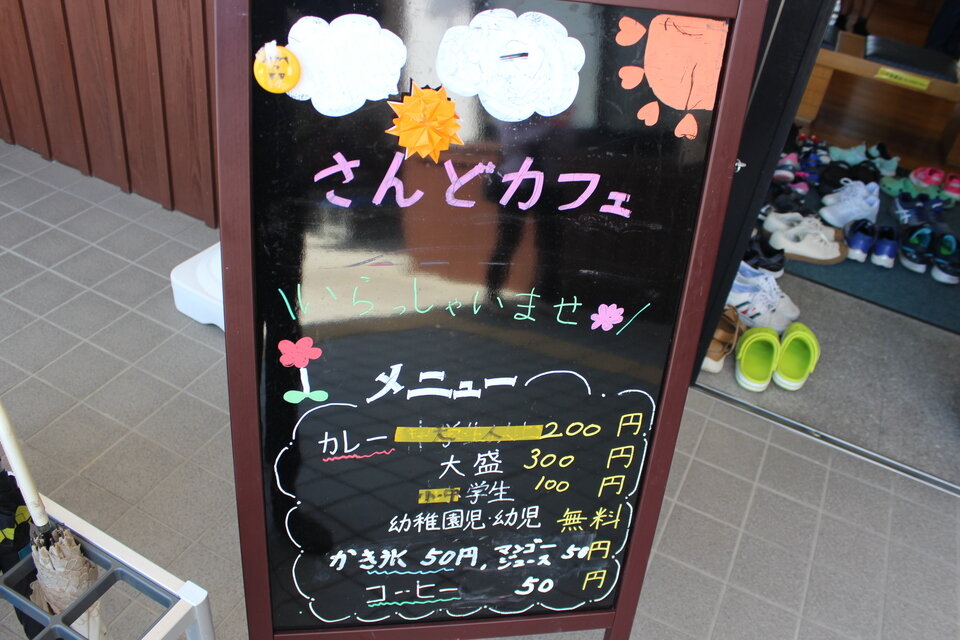 さんどカフェ
\いらっしゃいませ/
メニュー
カレー 大人 200円
大盛 300円
小・中学生 100円
幼稚園児・幼児 無料
かき氷 50円、マンゴージュース 50円
コーヒー 50円